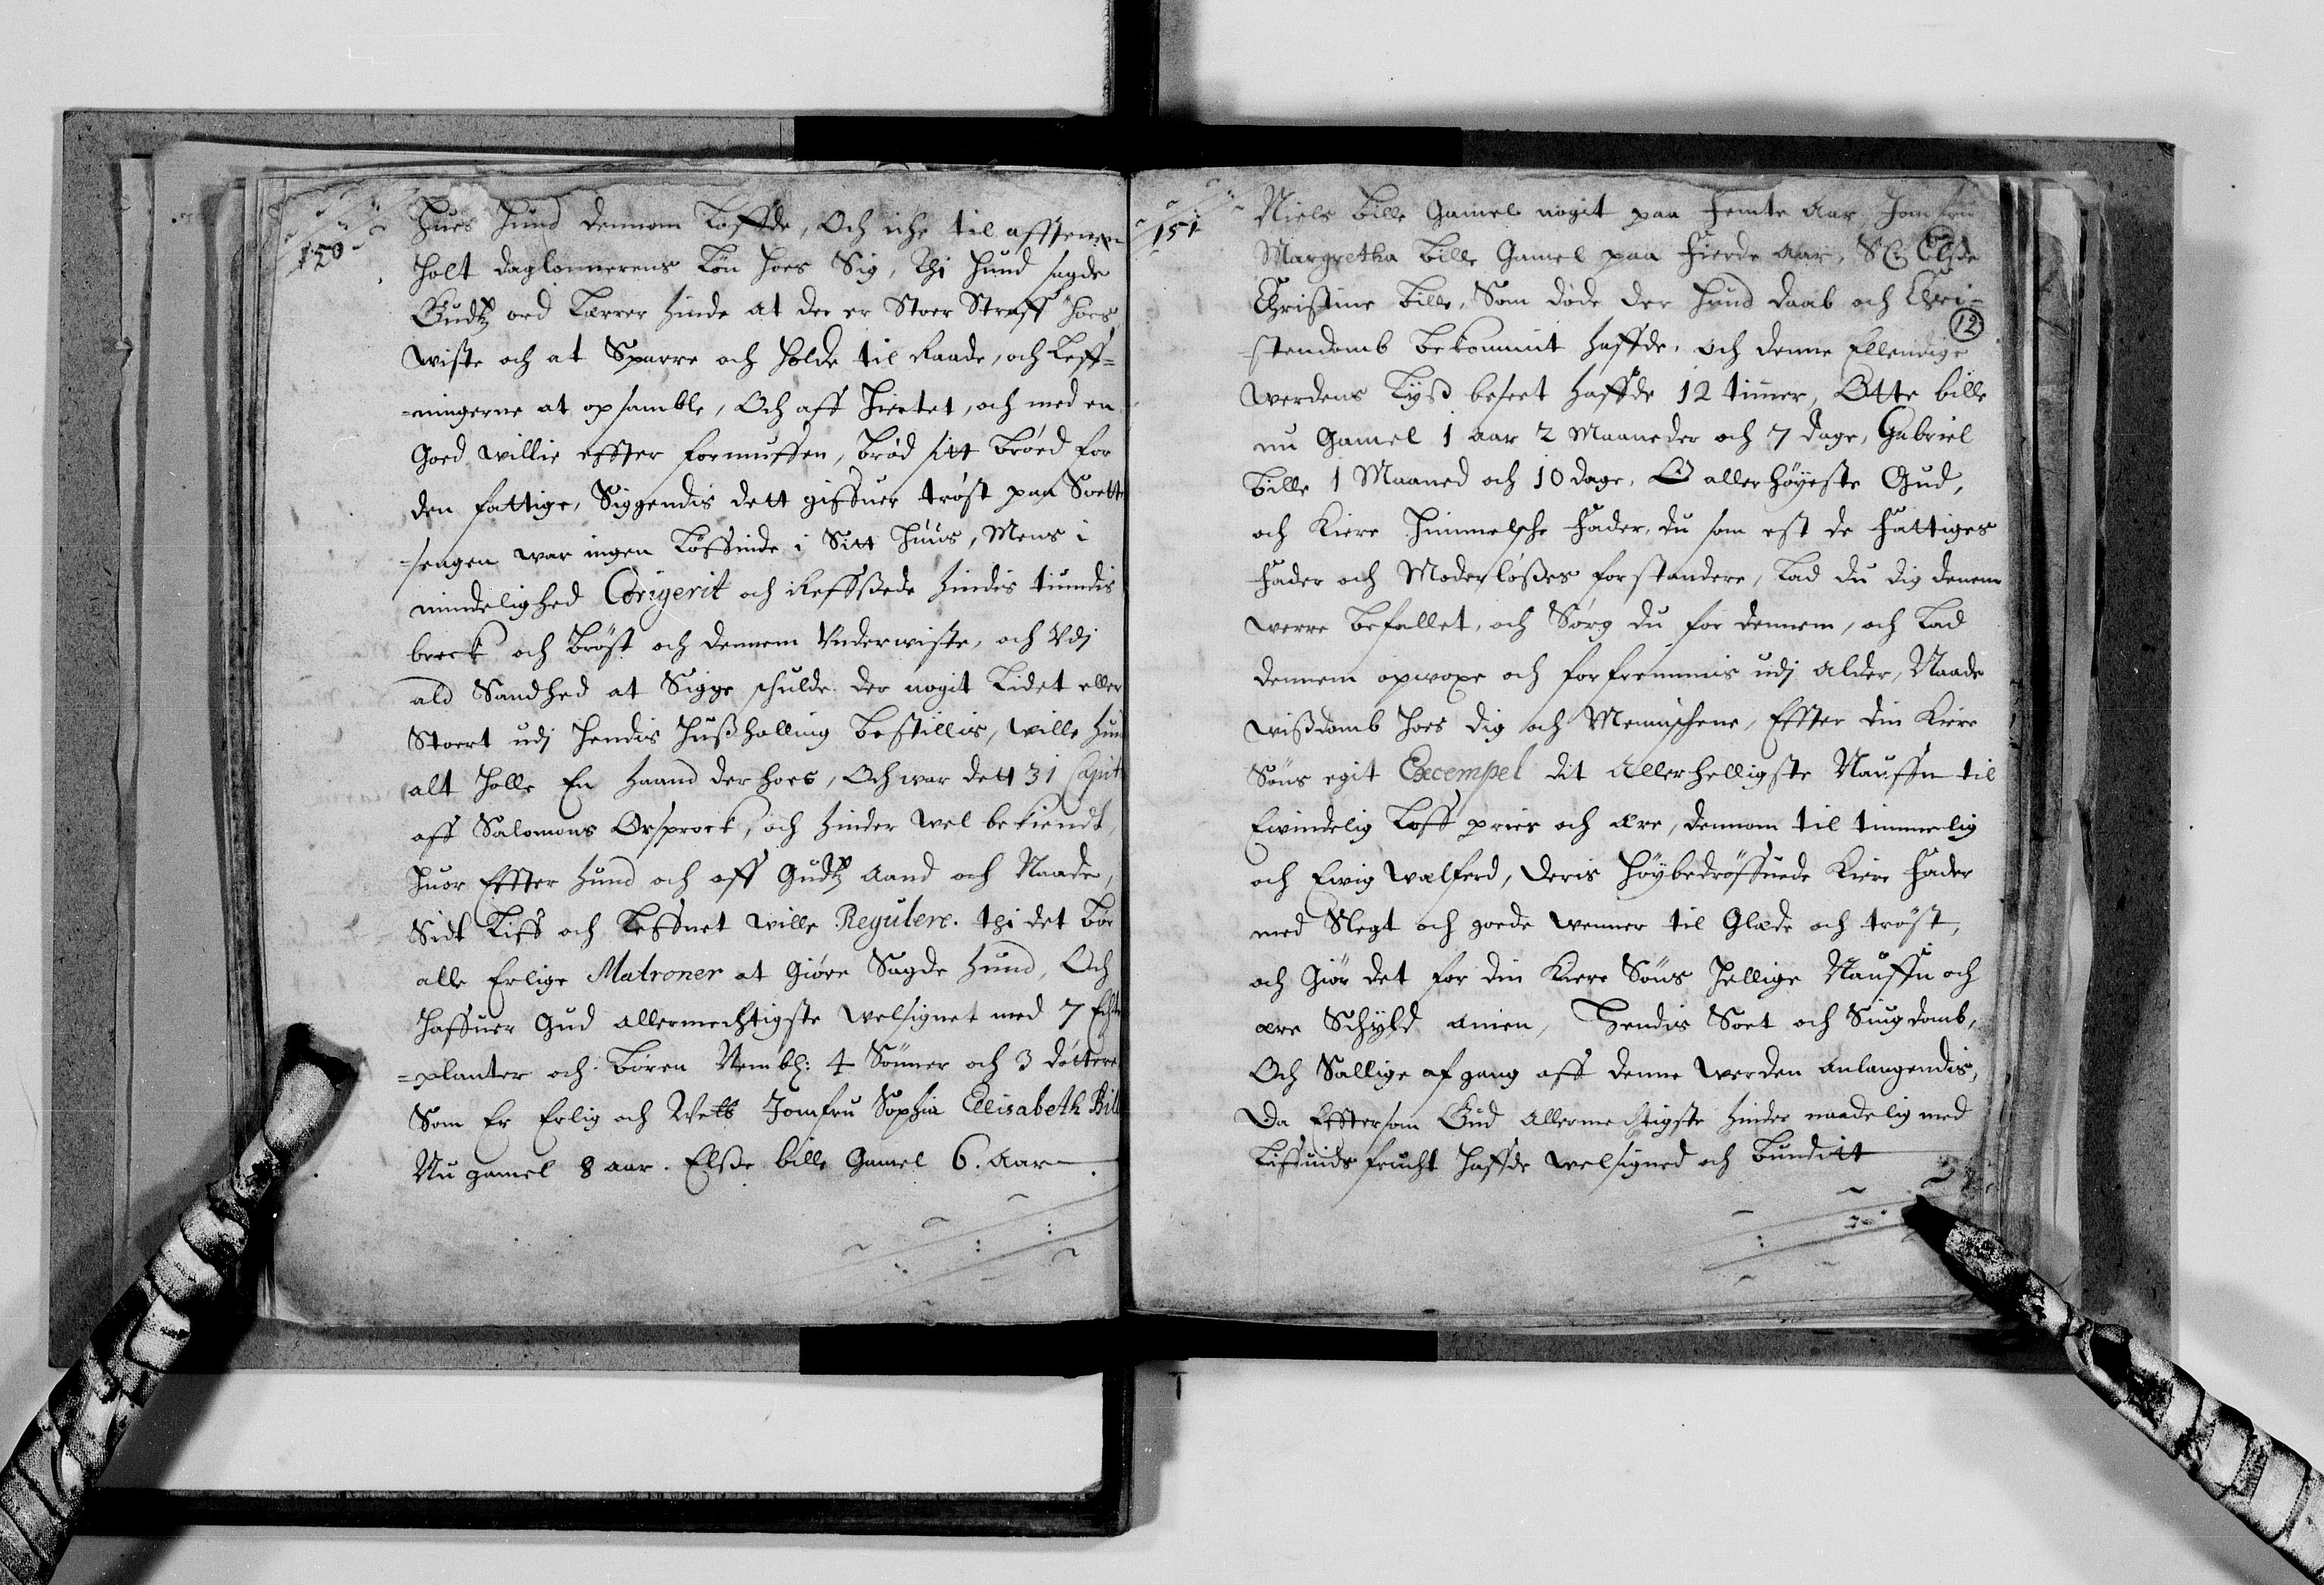 150
Hues hund dennom Loffde, Och iche til afftenen
Holt daglønnerens Løn hoes Sig, Thi hund sagde
Gudtz ord Lærrer hinde at der er Stoer Straff hoes
wiste och at Sparre och holde til Raade, och Leff-
-ningerne at opsamble, Och aff Hiertet, och med en
goed willie effter formuffen, brød sitt brød for
den fattige, Siggendis dett giffuer trøst paa Sotte
-sengen war ingen Løffinde i Sitt Huus, Mens i
mindelighed Corigerit och Reffssede hindis tiundis
breck och brøst och dennem Underwiste, och Udj
ald Sandhed at Sigge schulde der nogit Lidet eller
Stoert udj hendis Huussholling bestillis, wille hun
alt holle En haand der hoes, Och war dett 31 Capit
aff Salomons Orsprock, och hinder wel bekiendt,
huor Effter hund och aff Gudtz aand och Naade,
Sidt Liff och Leffnet wille Regulere. thi det bør
alle Erlige Matroner at giøre Sagde hund, Och
haffuer Gud allermechtigste welsignet med 7 Echte
-planter och børen Nembl: 4 Sønner och 3 døttere
Som Er Erlig och Welb Jomfru Sophia Ellisabeth Bill
Nu gamel 8 aar. Elsse bille Gamel 6. Aar
151
12
Niels bille Gamel nogit paa femte Aar Jomfru
Margretha bille Gamel paa fierde aar, Sl: Elsse
Christine bille, Som døde der hund daab och Chri-
-stendomb bekommit haffde, och denne Ellendige
werdens Lyss beseet haffde 12 timer, Otte bille
nu Gamel 1 aar 2 Maaneder och 7 dage, Gabriel
bille 1 Maaned och 10 dage, O allerhøyeste Gud,
och Kiere Himmelsche Fader, du som est de Fattiges
Fader och Moderløsses forstandere, Lad du dig denem
werre befallet, och Sørg du for dennem, och Lad
dennem opwoxe och forfremmis udj alder, Naade
wissdomb hoes dig och Mennischene, Effter din Kiere
Søns egit Excempel dit Allerhelligste Nauffn til
Ewindelig Loff priis och ære, dennom til timmelig
och Ewig walferd, deris høybedrøffuede Kiere Fader
med Slegt och goede wenner til Glæde och trøst,
och giør det for din Kiere Søns hellige Nauffn och
ære Schyld amen, Hendis Soet och Siugdomb,
Och Sallige afgang aff denne werden anlangendis,
Da Efftersom Gud Allermechtigste hinder naadelig med
Liffuids frucht haffde welsigned och bunditt